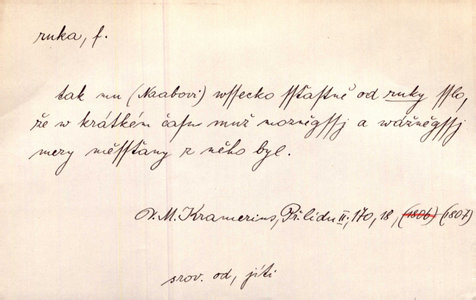 ruka, f.
tak mu (Naabovi) wssecko sstastně od ruky sslo,
že w krátkém času muž moznėgssj a wážněgssj
mezy měssťany z něho byl.
V. M. Kramerius, Přilidu II, 170, 18, (1806) (1807)
srov. od, jíti